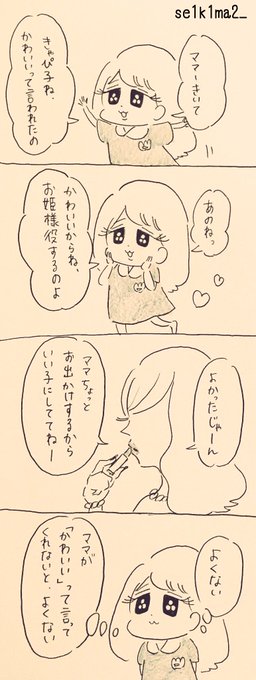 se1k1ma2_
ママーきいて
きゃぴ子ね
かわいいって言われたの
あのねっ
かわいいからね、
お姫様役するのよ
よかったじゃーん
ママちょっと
お出かけするから
いい子にしててねー
よくない
ママが
「かわいい」って言って
くれないと、よくない